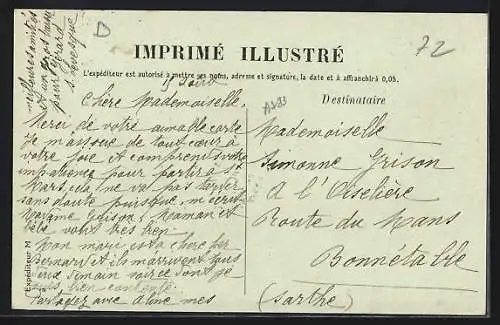 D
72
IMPRIMÉ ILLUSTRÉ
L'expéditeur est autorisé à mettre ses noms, adresse et signature, la date et à affranchir à 0,05.
Destinataire
Chère Mademoiselle,
Merci de votre aimable carte
Je m'associe de tout cœur à
votre joie et comprends votre
impatience pour partir à St
Mars, cela ne va pas tarder
sans doute puisque, m'écrit
Madame Grison, Maman et
bébé vont très bien.
Mon mari est à
Bernard et ils m'arrivent tous
deux demain soir ce dont je
suis bien contente.
Partagez avec Aline mes
meilleures amitiés
Mademoiselle
Simonne Grison
à l'Oiselière
Route du Mans
Bonnétable
(Sarthe)
Expéditeur M